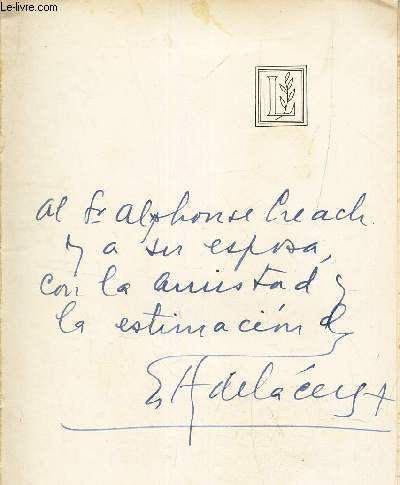 © Le-livre.com
L
Al Sr Alphonse Creach
y a su esposa,
con la amistad y
la estimación de